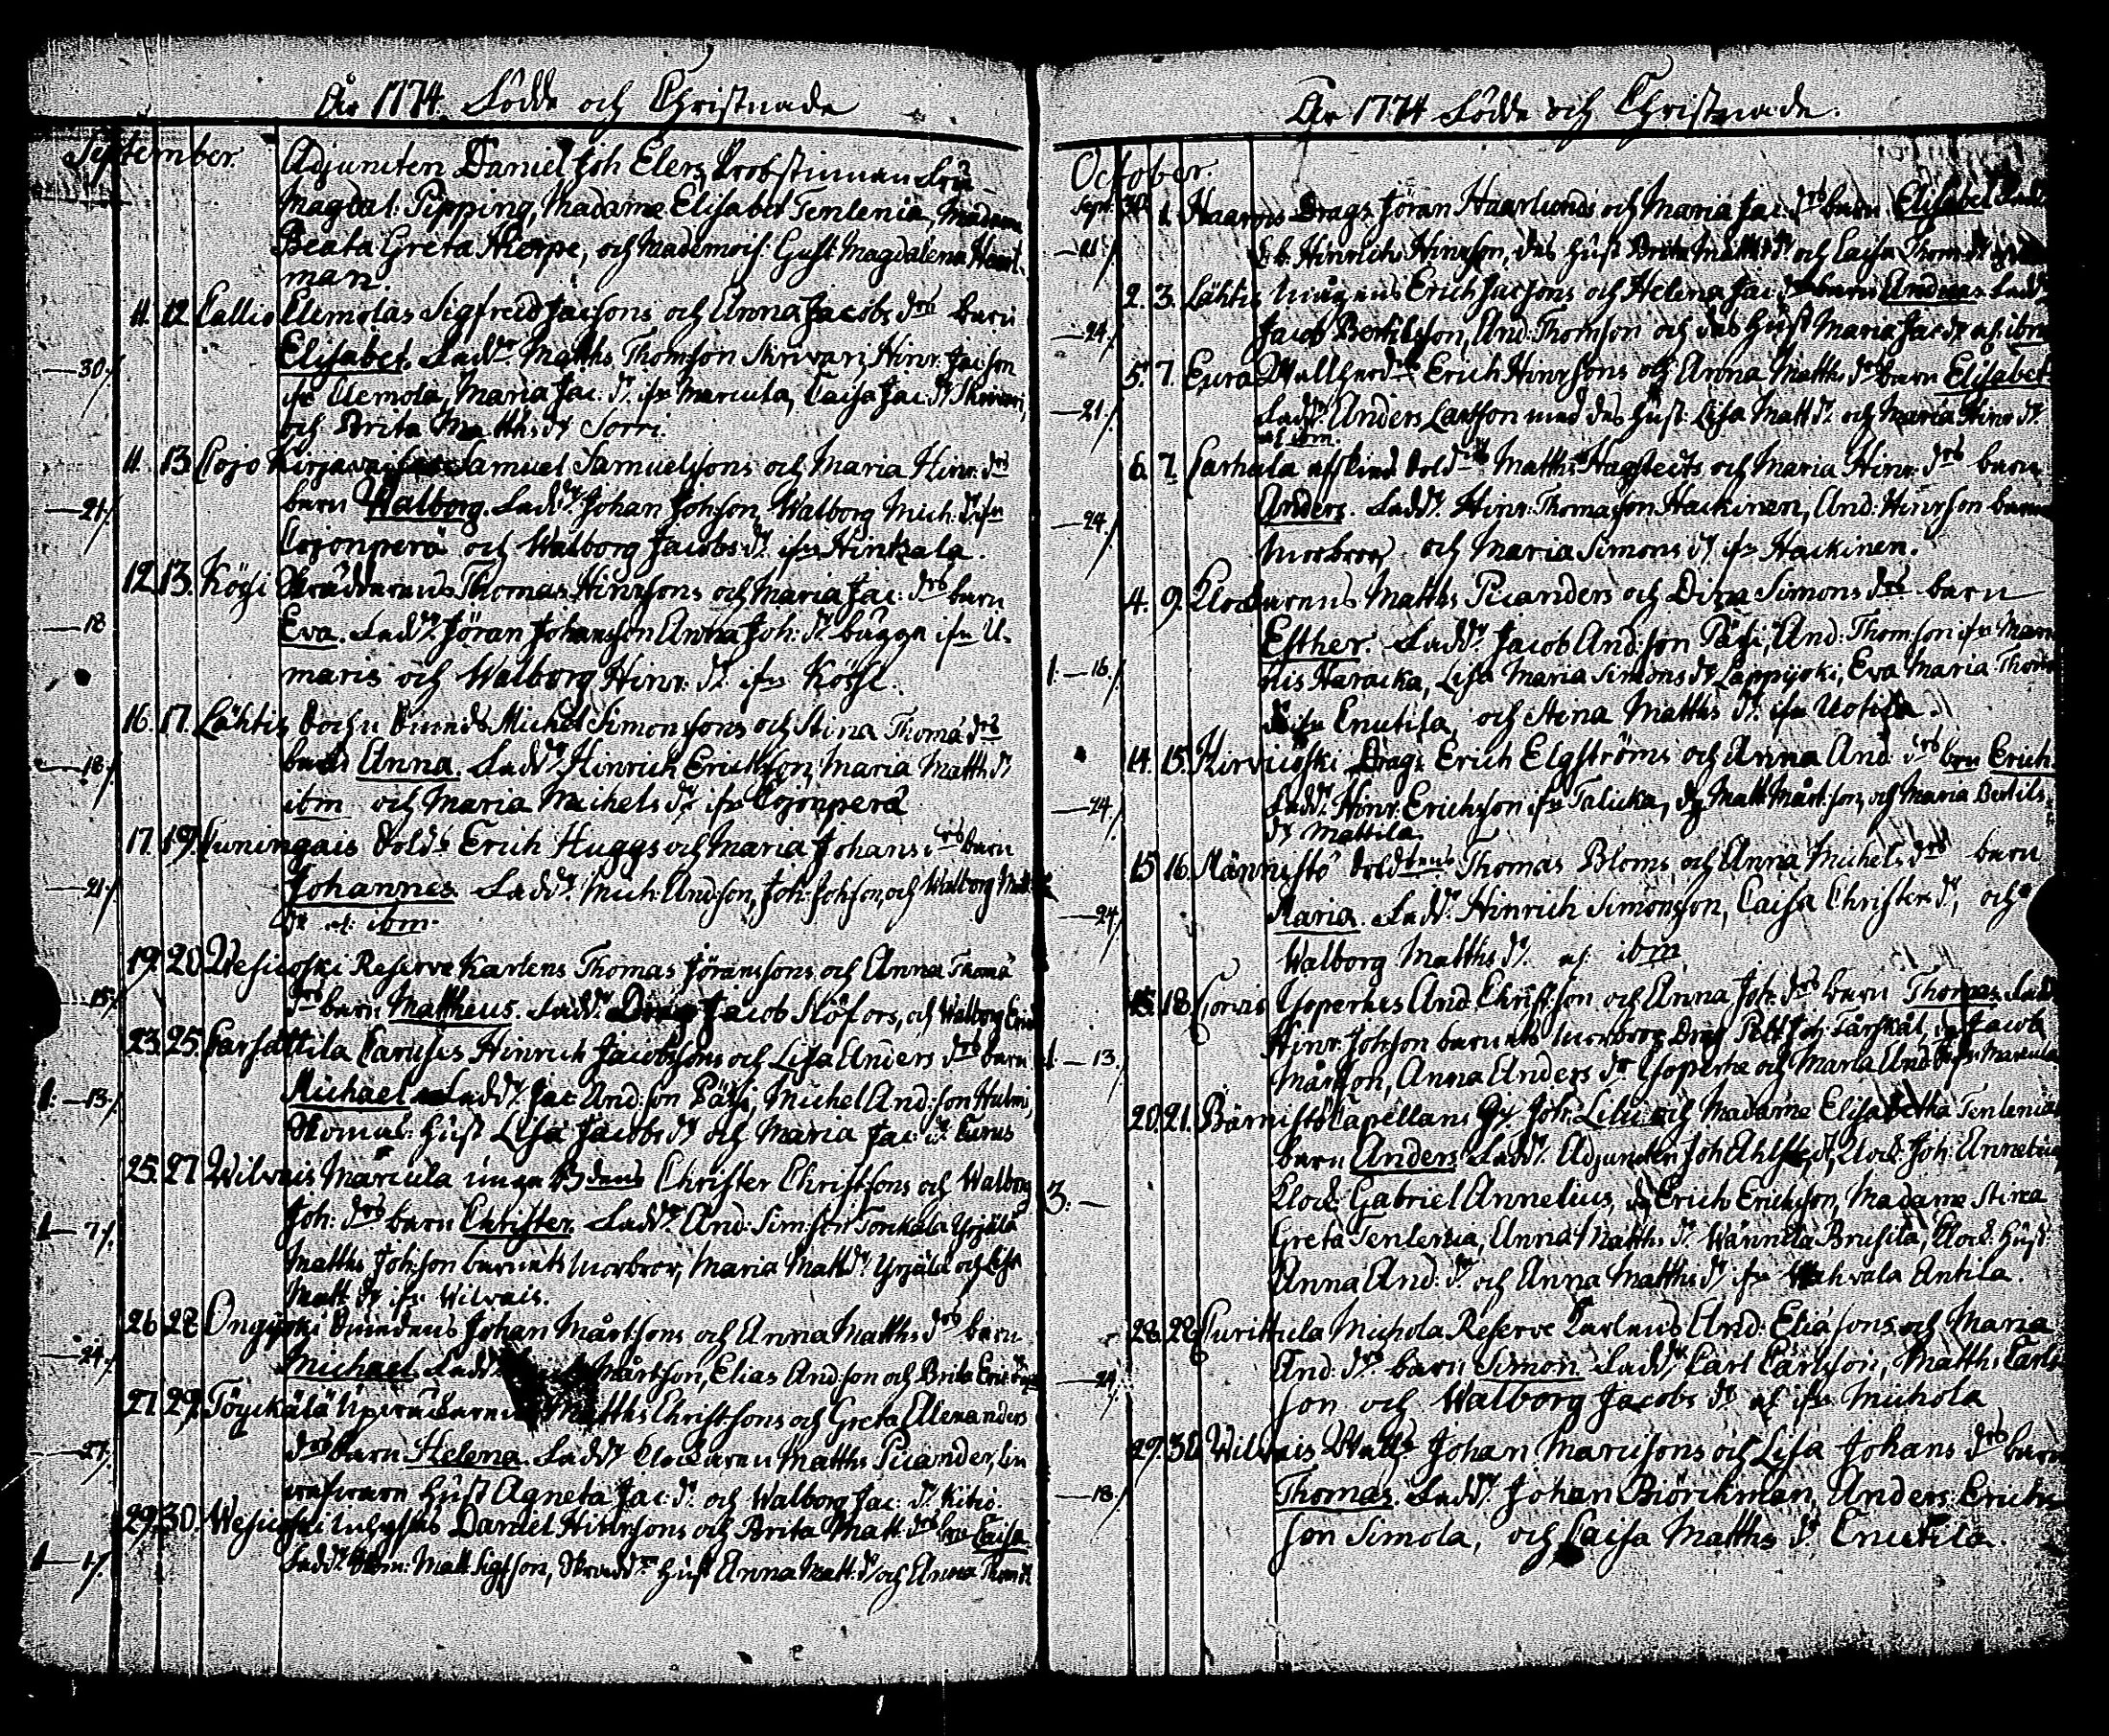 År 1774 Födde och Christnade
September.
Adjuncten Daniel Joh Elers, Probstinnan
Magdal: Pipping, Madame Elisabet Tenlenia, Madame
Beata Greta Hierpe, och Mademois: Gust Magdalena
man.
11. 12 Callio Elemolas Sigfred Jacsons och Anna Jacobs drs barn
Elisabet. Fadd. Matths Thomson Skrivari, Hinr. Jacson
—30. ifr Elemola, Maria Jac: dr ifr Marcula, Caisa Jac: dr Skrivari,
och Brita Matths dr Sorri.
11. 13 Cojo Kirjava Samuel Samuelssons och Maria Hinr. drs
—21. barn Walborg. Fadd. Johan Johson, Walborg Mich. dr ifr
Cojonperä och Walborg Jacobs dr ifr Hintzala.
12. 13. Köysi Thomas Hinrsons och Maria Jac: drs barn
—18 Eva. Fadd. Jöran Johansson Anna Joh: dr bägge ifr U-
maris och Walborg Hinr. dr ifr Köysi.
16. 17. Lähtis Michel Simonssons och Stina Thoma drs
—18. barn Anna. Fadd. Hinrich Erichsson, Maria Matth dr
ibm och Maria Michels dr ifr Cojonperä
17. 19. Cuningais Solds Erich Huggs och Maria Johans drs barn
—21. Johannes Fadd. Mich: Andson, Joh: Johson, och Walborg Matt
dr af ibm.
19. 20 Wesicoski Reserve Karlens Thomas Jöranssons och Anna Thoma
—15. drs barn Mattheus. Fadd. Drag Jacob Slöfors, och Walborg Erics
23. 25. Carsattila Hinrich Jacobssons och Lisa Anders drs barn
1. —13. Michael Fadd. Jac And:son Päysi, Michel And:son Hulmi,
hust Lisa Jacobs dr och Maria Jac: dr Curus
25. 27 Wilvais Marcula unga Bdens Christer Christsons och Walborg
1—7. Joh: drs barn Christer. Fadd. And: Sim:son Tonckala Yrjälä
Matths Johson barnets morbror, Maria Matt dr Yrjälä och Lisa
Matt dr ifr Wilvais.
26 28 Ongijoki Johan Mårtsons och Anna Matths drs barn
—24. Michael. Fadd. Mårtson, Elias Andson och Brita Eric dr
27. 29. Töyckälä Matths Christsons och Greta Ellenanders
—27. drs barn Helena. Fadd Clockaren Matths Picander,
hust Agneta Jac: dr och Walborg Jac: dr Kitiö.
29. 30. Wesicoski Daniel Hinrsons och Brita Matt drs barn Caisa
1—17. Fadd. Matt Sigfson, hust Anna Matt dr och Anna Thom dr
År 1774 Födde och Christnade.
October.
Sept. 30 1. Haaros Drag: Jöran Haarlunds och Maria Jac: drs barn Elisabet Fadd
Hinrich Hinrson, des hust Brita Matths dr och Caisa Thom dr
2. 3. Lähtis Erich Jacsons och Helena Jac: drs barn Andreas. Fadd
—24. Jacob Bertilsson, And: Thomson och des hust Maria Jac dr af ibm
5. 7. Eura Erich Hinrsons och Anna Matths drs barn Elisabet
—21. Fadd. Anders Larsson med des hust Lisa Matt dr och Maria Hinr dr
af ibm.
6. 7. Carhala Matths Hagstedts och Maria Hinr drs barn
—24. Anders. Fadd. Hinr: Thomasson Hackinen, And: Hinrson barnets
morbror och Maria Simons dr ifr Hackinen.
4. 9. Clockarens Matths Picanders och Dina Simons drs barn
Esther. Fadd. Jacob And:son Päysi, And: Thom:son ifr
1. —16. Haracka, Lisa Maria Simons dr Lappijoki, Eva Maria Thoma
dr ifr Enutila, och Stina Matths dr ifr Uotila.
14. 15. Kirvicoski Drag: Erich Elgströms och Anna And: drs brn Erich.
—24. Fadd. Hinr: Erichsson ifr Talicka, Matt Mårtson, och Maria Bertils
dr Mattila.
15 16. Männistö Thomas Bloms, och Anna Michels drs barn
—24. Maria. Fadd. Hinrich Simonsson, Caisa Christers dr, och
Walborg Matths dr af ibm
15. 18. Corvis And: Christson och Anna Joh: drs barn Thomas Fadd
Hinr. Johson barnets morbror, Drag Joh: Jacob
1—13. Mårtson, Anna Anders dr och Maria And dr ifr Marcula
20. 21. Bärnistö Capellans Joh: Lilii och Madame Elisabetha Tenlenias
barn Anders. Fadd. Adjuncten Joh Ahlstedt, Clock: Joh: Annelius,
3. — Clock: Gabriel Annelius, Erich Erichsson, Madame Stina
Greta Tenlenia, Anna Matths dr Wännilä Brusila, Clock: hust:
Anna And: dr och Anna Matths dr ifr Antila.
28. 29 Curittula Michola Reserve Carlens And: Eliasons och Maria
—24. And: drs barn Simon Fadd. Carl Carlsson, Matths Carls
son och Walborg Jacobs dr af ifr Michola
29. 30 Wilvais Johan Marcusons och Lisa Johans drs barn
—18. Thomas. Fadd. Johan Biörckman, Anders Erichs
son Simola, och Caisa Matths dr Enutila.